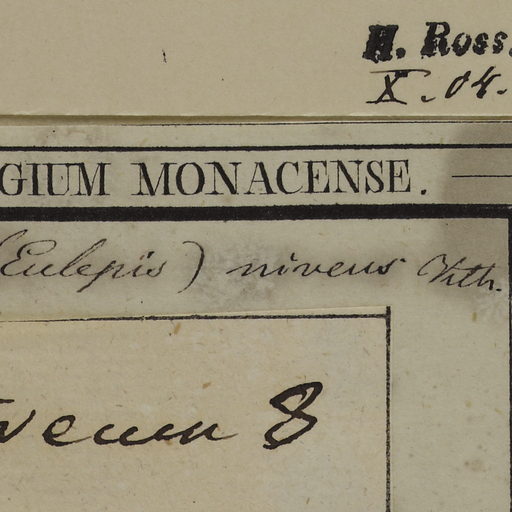 H. Ross.
X. 04.
GIUM MONACENSE.
(Eulepis) niveus Vitt.
veum 8